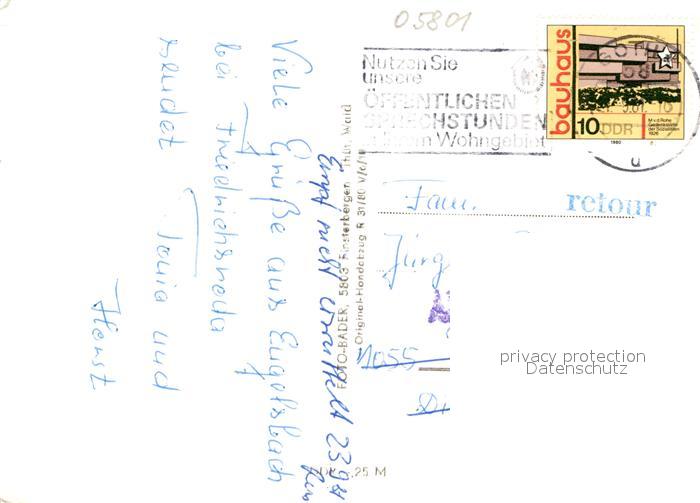 05801
Nutzen Sie
unsere
ÖFFENTLICHEN
SPRECHSTUNDEN
Wohngebiet
GOTHA
bauhaus
10 DDR
M v d Rohe
Gedenkstätte
der Sozialisten
1926
1980
u
Viele Grüße aus Engelsbach
bei Friedrichroda
sendet Tonia und
Horst
Empf nicht ermittelt 23 9 81
FOTO-BADER, 5803 Finsterbergen Thür. Wald
Original-Handabzug R 31/80 V/6/1
,25 M
Fam.
retour
Jürg
1055
privacy protection
Datenschutz